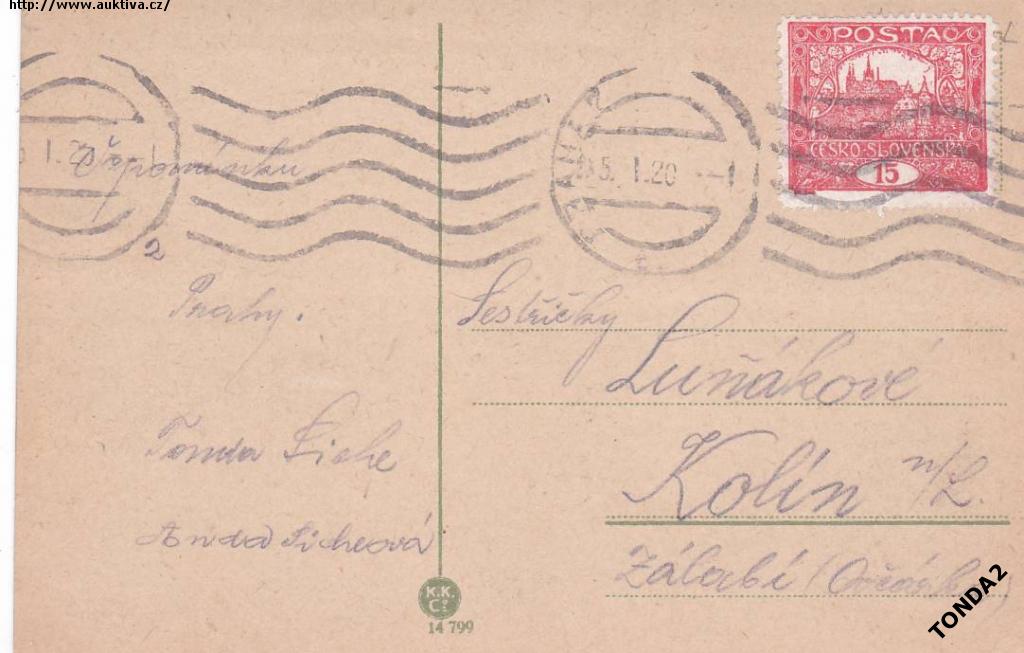 http://www.auktiva.cz/
POŠTA
ČESKO-SLOVENSKÁ
15
5. I. 20 - - 1
Vzpomínku
z
Prahy.
Tonda Siche
Anda Sicheová
Sestřičky
Luňákové
Kolín n/L.
Zálabí
K.K.
Co
14 799
TONDA2